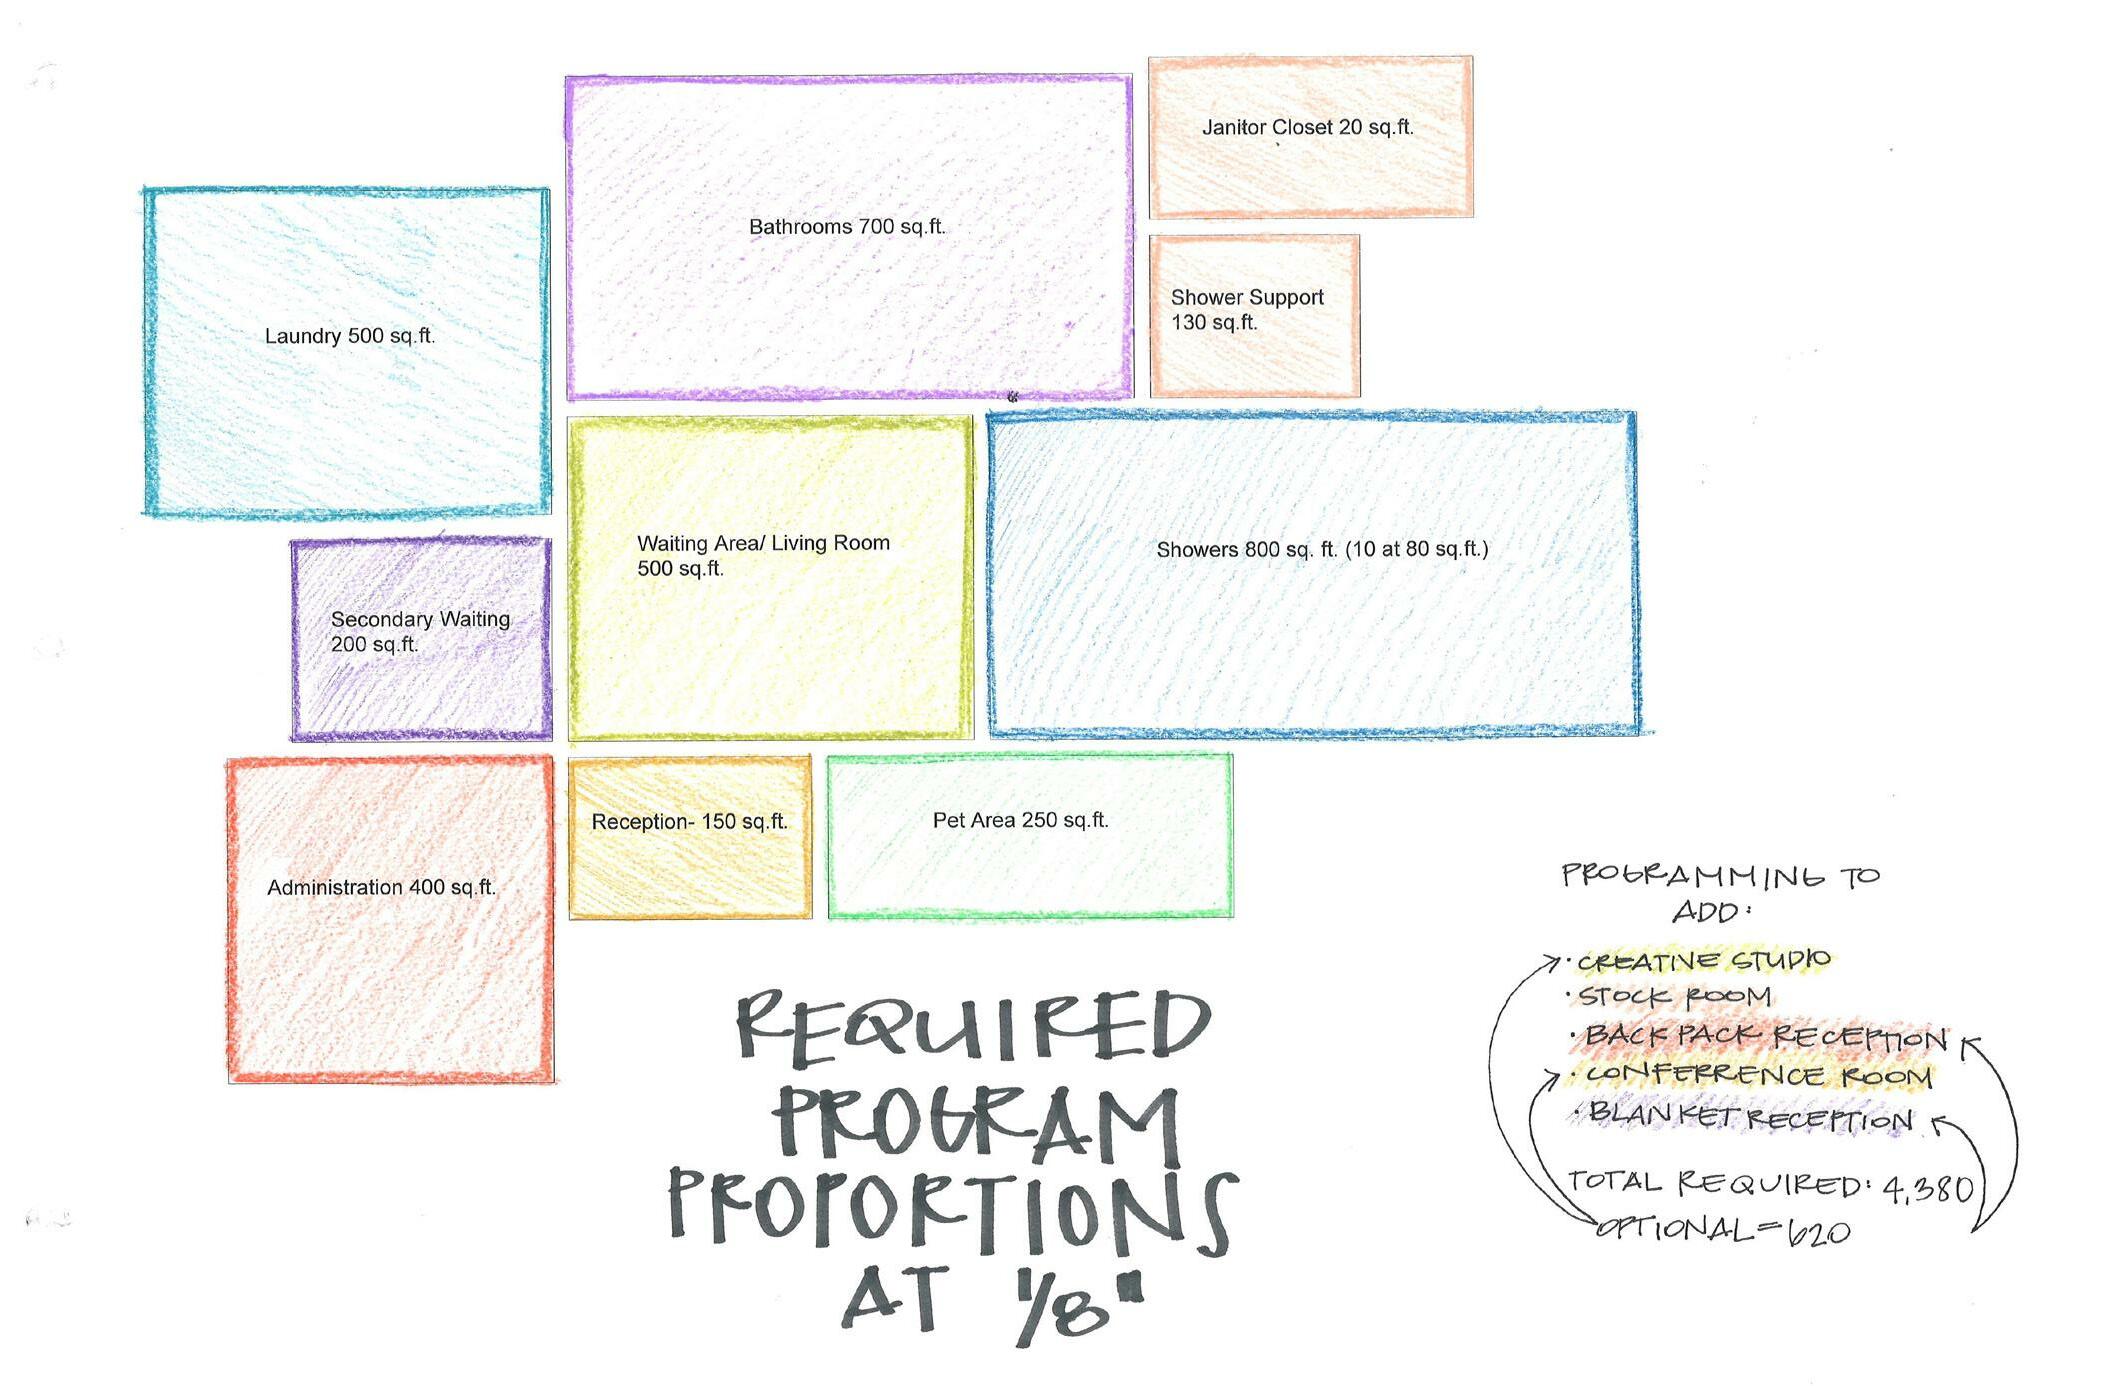 Janitor Closet 20 sq.ft.
Bathrooms 700 sq.ft.
Shower Support
130 sq.ft.
Laundry 500 sq.ft.
Waiting Area/ Living Room
500 sq.ft.
Showers 800 sq. ft. (10 at 80 sq.ft.)
Secondary Waiting
200 sq.ft.
Administration 400 sq.ft.
Reception- 150 sq.ft.
Pet Area 250 sq.ft.
REQUIRED
PROGRAM
PROPORTIONS
AT 1/8"
PROGRAMMING TO
ADD:
· CREATIVE STUDIO
· STOCK ROOM
· BACK PACK RECEPTION
· CONFERRENCE ROOM
· BLANKET RECEPTION
TOTAL REQUIRED: 4,380
OPTIONAL = 620